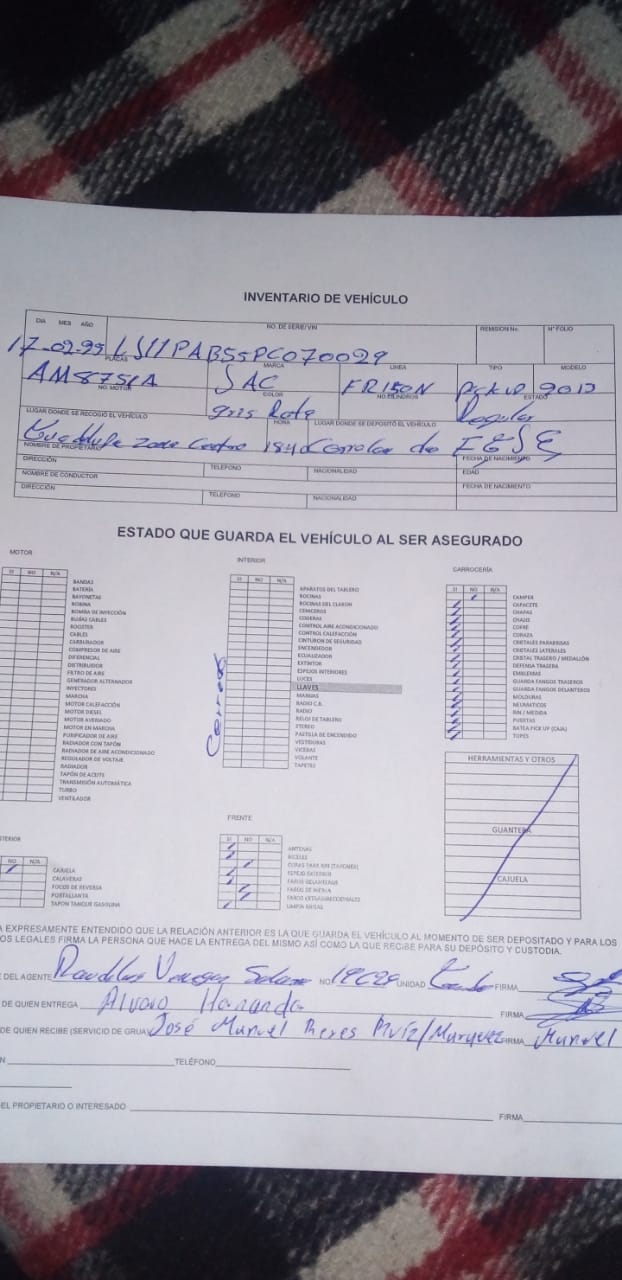 INVENTARIO DE VEHÍCULO
DIA MES AÑO NO. DE SERIE/VIN REMISION No. N° FOLIO
17-02-99 LS11PAB55PC070029
PLACAS MARCA LINEA TIPO MODELO
AM8751A JAC FR150N Pick up
NO. MOTOR COLOR NO. CILINDROS ESTADO
gris Rata Regular
LUGAR DONDE SE RECOGIO EL VEHÍCULO HORA LUGAR DONDE SE DEPOSITÓ EL VEHÍCULO
Zona Centro de
NOMBRE DE PROPIETARIO FECHA DE NACIMIENTO
DIRECCIÓN TELEFONO NACIONALIDAD EDAD
NOMBRE DE CONDUCTOR FECHA DE NACIMIENTO
DIRECCIÓN TELEFONO NACIONALIDAD
ESTADO QUE GUARDA EL VEHÍCULO AL SER ASEGURADO
MOTOR
SI NO N/A
BANDAS
BATERÍA
BAYONETAS
BOBINA
BOMBA DE INYECCIÓN
BUJÍAS CABLES
BOOSTER
CABLES
CARBURADOR
COMPRESOR DE AIRE
DIFERENCIAL
DISTRIBUIDOR
FILTRO DE AIRE
GENERADOR ALTERNADOR
INYECTORES
MARCHA
MOTOR CALEFACCIÓN
MOTOR DIESEL
MOTOR AVERIADO
MOTOR EN MARCHA
PURIFICADOR DE AIRE
RADIADOR CON TAPÓN
RADIADOR DE AIRE ACONDICIONADO
REGULADOR DE VOLTAJE
RADIADOR
TAPÓN DE ACEITE
TRANSMISIÓN AUTOMÁTICA
TURBO
VENTILADOR
INTERIOR
SI NO N/A
APARATOS DEL TABLERO
BOCINAS
BOCINAS DEL CLAXON
CENICEROS
CODERAS
CONTROL AIRE ACONDICIONADO
CONTROL CALEFACCIÓN
CINTURON DE SEGURIDAD
ENCENDEDOR
ECUALIZADOR
EXTINTOR
ESPEJOS INTERIORES
LUCES
LLAVES
MANIJAS
RADIO C.B.
RADIO
RELOJ DE TABLERO
STEREO
PASTILLA DE ENCENDIDO
VESTIDURAS
VICERAS
VOLANTE
TAPETES
CARROCERÍA
SI NO N/A
CAMPER
CAPACETE
CHAPAS
CHASIS
COFRE
CORAZA
CRISTALES PARABRISAS
CRISTALES LATERALES
CRISTAL TRASERO / MEDALLÓN
DEFENSA TRASERA
EMBLEMAS
GUARDA FANGOS TRASEROS
GUARDA FANGOS DELANTEROS
MOLDURAS
NEUMATICOS
RIN / MEDIDA
PUERTAS
BATEA PICK UP (CAJA)
TOPES
HERRAMIENTAS Y OTROS
GUANTERA
CAJUELA
TERIOR
NO N/A
CAJUELA
CALAVERAS
FOCOS DE REVERSA
PORTALLANTA
TAPON TANQUE GASOLINA
FRENTE
SI NO N/A
ANTENAS
BICELES
COPAS PARA RIN (TAPONES)
ESPEJO EXTERIOR
FAROS DELANTEROS
FAROS DE NIEBLA
LIMPIA BRISAS
A EXPRESAMENTE ENTENDIDO QUE LA RELACIÓN ANTERIOR ES LA QUE GUARDA EL VEHÍCULO AL MOMENTO DE SER DEPOSITADO Y PARA LOS
OS LEGALES FIRMA LA PERSONA QUE HACE LA ENTREGA DEL MISMO ASÍ COMO LA QUE RECIBE PARA SU DEPÓSITO Y CUSTODIA.
DEL AGENTE NO UNIDAD FIRMA
DE QUIEN ENTREGA Alvaro FIRMA
DE QUIEN RECIBE (SERVICIO DE GRUA) José Manuel FIRMA Manuel
N TELÉFONO
EL PROPIETARIO O INTERESADO FIRMA